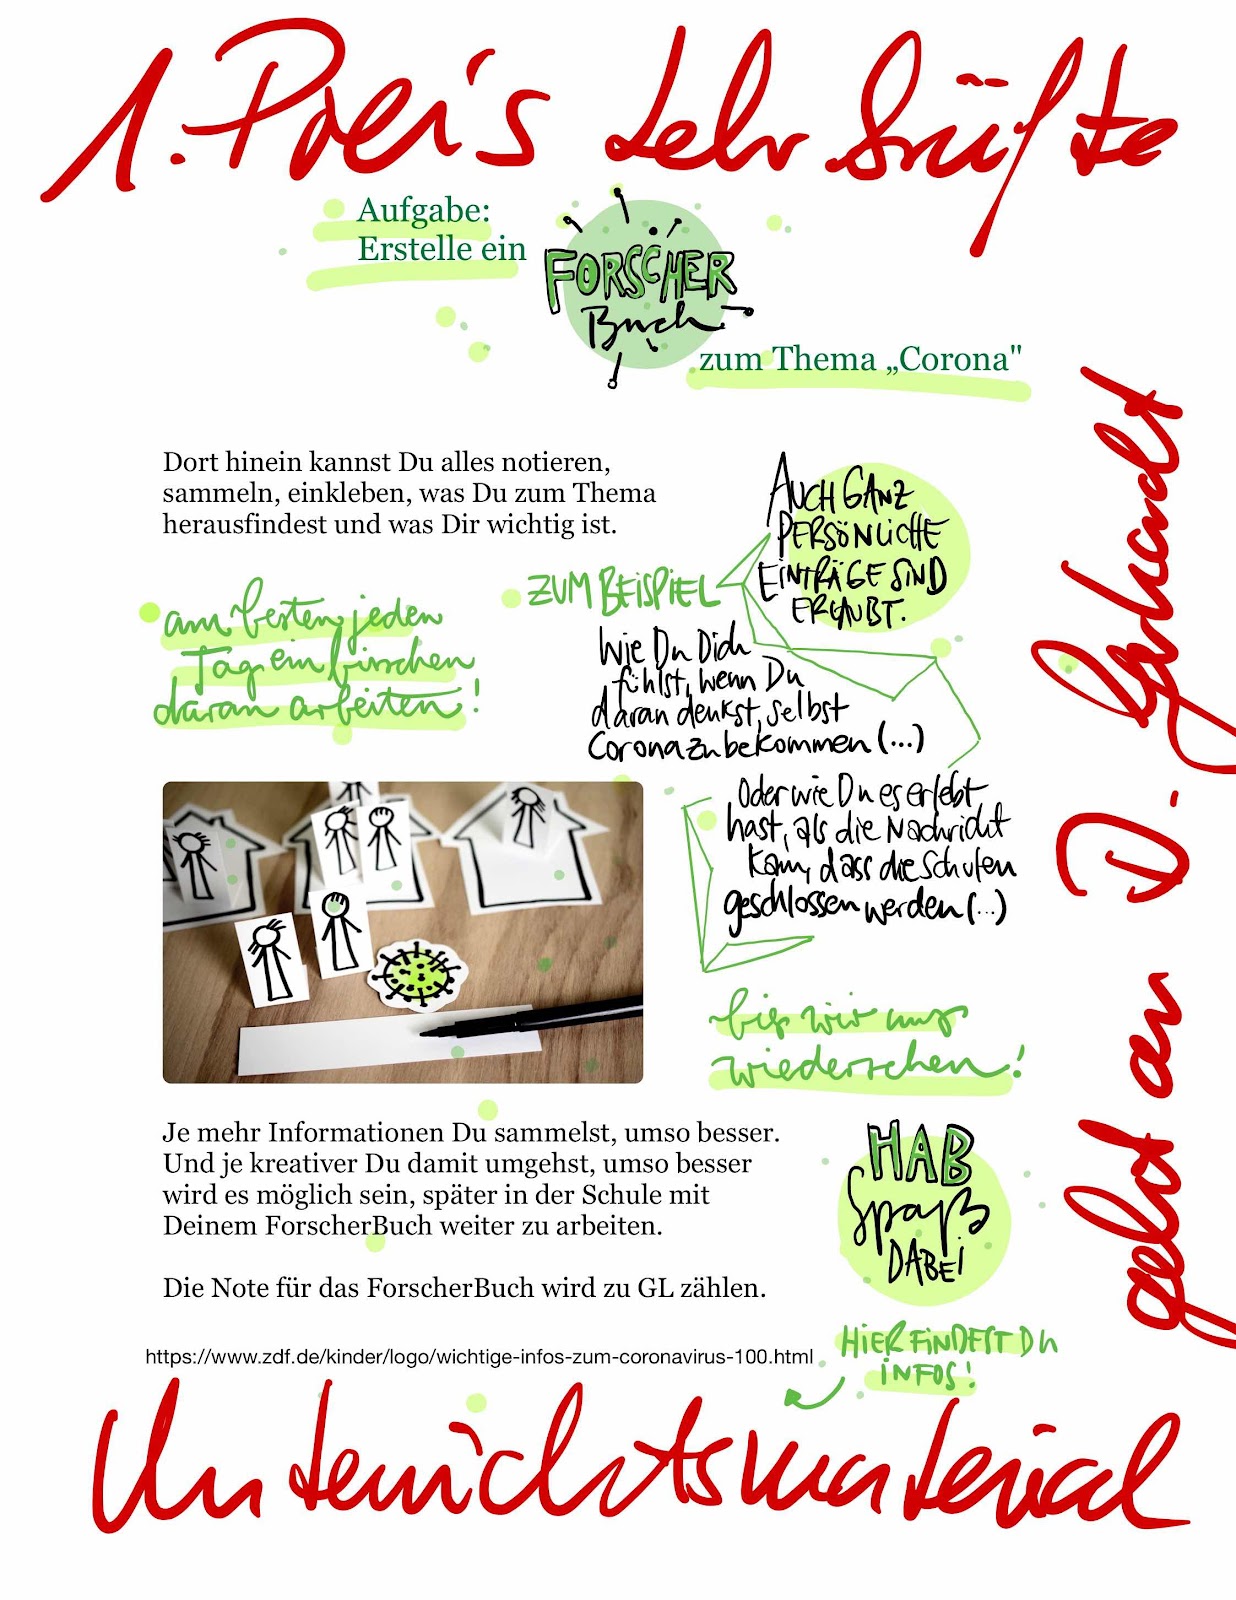 1. Preis Lehrkräfte
Aufgabe:
Erstelle ein
FORSCHER
Buch
zum Thema „Corona"
Dort hinein kannst Du alles notieren,
sammeln, einkleben, was Du zum Thema
herausfindest und was Dir wichtig ist.
AUCH GANZ
PERSÖNLICHE
EINTRÄGE SIND
ERLAUBT.
am besten jeden
Tag ein bisschen
daran arbeiten!
ZUM BEISPIEL
Wie Du Dich
fühlst, wenn Du
daran denkst, selbst
Corona zu bekommen (...)
Oder wie Du es erlebt
hast, als die Nachricht
kam, dass die Schulen
geschlossen werden (...)
bis wir uns
wiedersehen!
Je mehr Informationen Du sammelst, umso besser.
Und je kreativer Du damit umgehst, umso besser
wird es möglich sein, später in der Schule mit
Deinem ForscherBuch weiter zu arbeiten.
HAB
Spaß
DABEI
Die Note für das ForscherBuch wird zu GL zählen.
https://www.zdf.de/kinder/logo/wichtige-infos-zum-coronavirus-100.html
HIER FINDEST DU
INFOS!
geht an D. Gerhardt
Unterrichtsmaterial